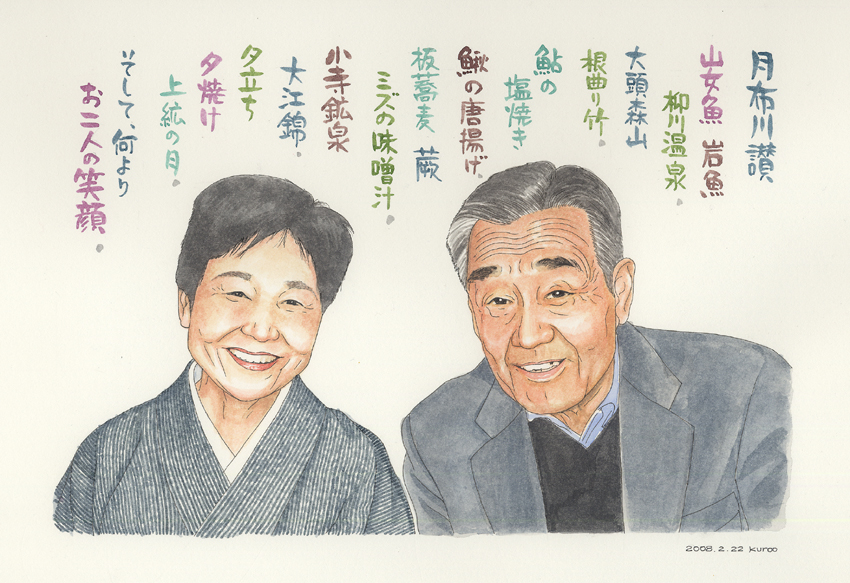 月布川讃
山女魚 岩魚
柳川温泉。
大頭森山
根曲り竹。
鮎の
塩焼き
鰍の唐揚げ。
板蕎麦 蕨
ミズの味噌汁。
小寺鉱泉
大江錦。
夕立ち
夕焼け
上鉱の月。
そして、何より
お二人の笑顔。
2008.2.22 Kuroo